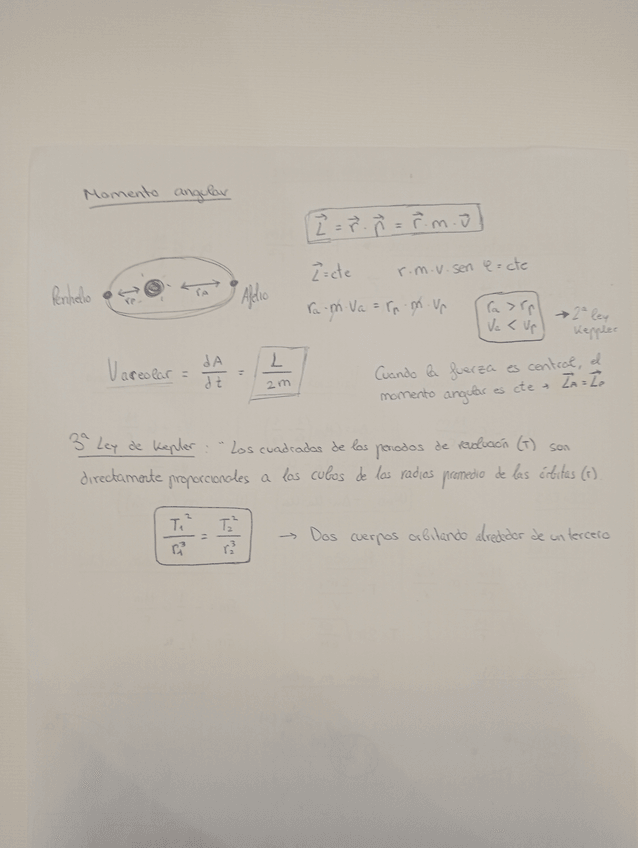 Momento angular
L⃗ = r⃗ · p⃗ = r⃗ · m · v⃗
L⃗ = cte r · m · v · sen φ = cte
Perihelio rp ra Afelio
ra · m · va = rp · m · vp
ra > rp
va < vp
→ 2ª ley Keppler
Vareolar = dA/dt = L/2m
Cuando la fuerza es central, el
momento angular es cte → L⃗A = L⃗p
3ª Ley de Kepler : " Los cuadrados de los periodos de revolución (T) son
directamente proporcionales a los cubos de los radios promedio de las órbitas (r).
T₁²/r₁³ = T₂²/r₂³ → Dos cuerpos orbitando alrededor de un tercero